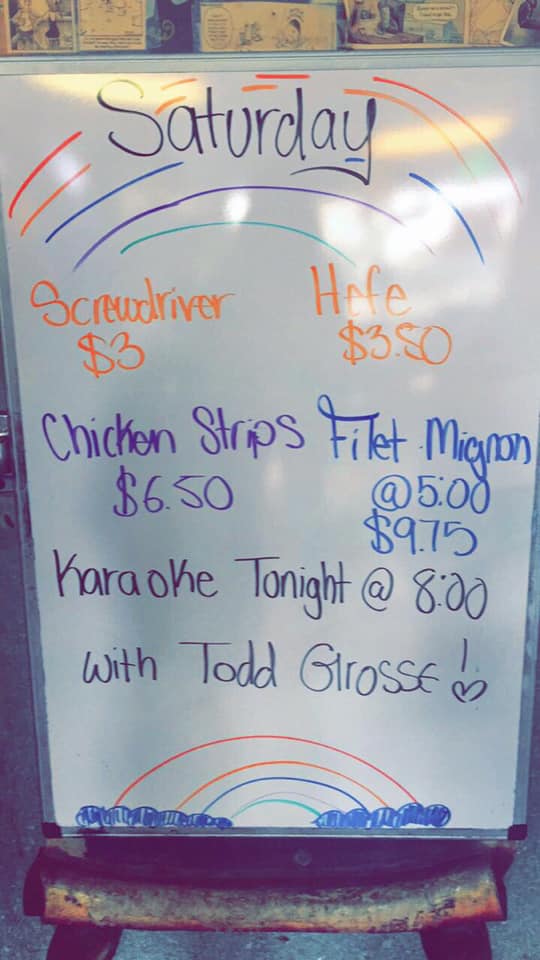 Saturday
Screwdriver
$3
Hefe
$3.50
Chicken Strips
$6.50
Filet Mignon
@ 5:00
$9.75
Karaoke Tonight @ 8:00
with Todd Grosse!